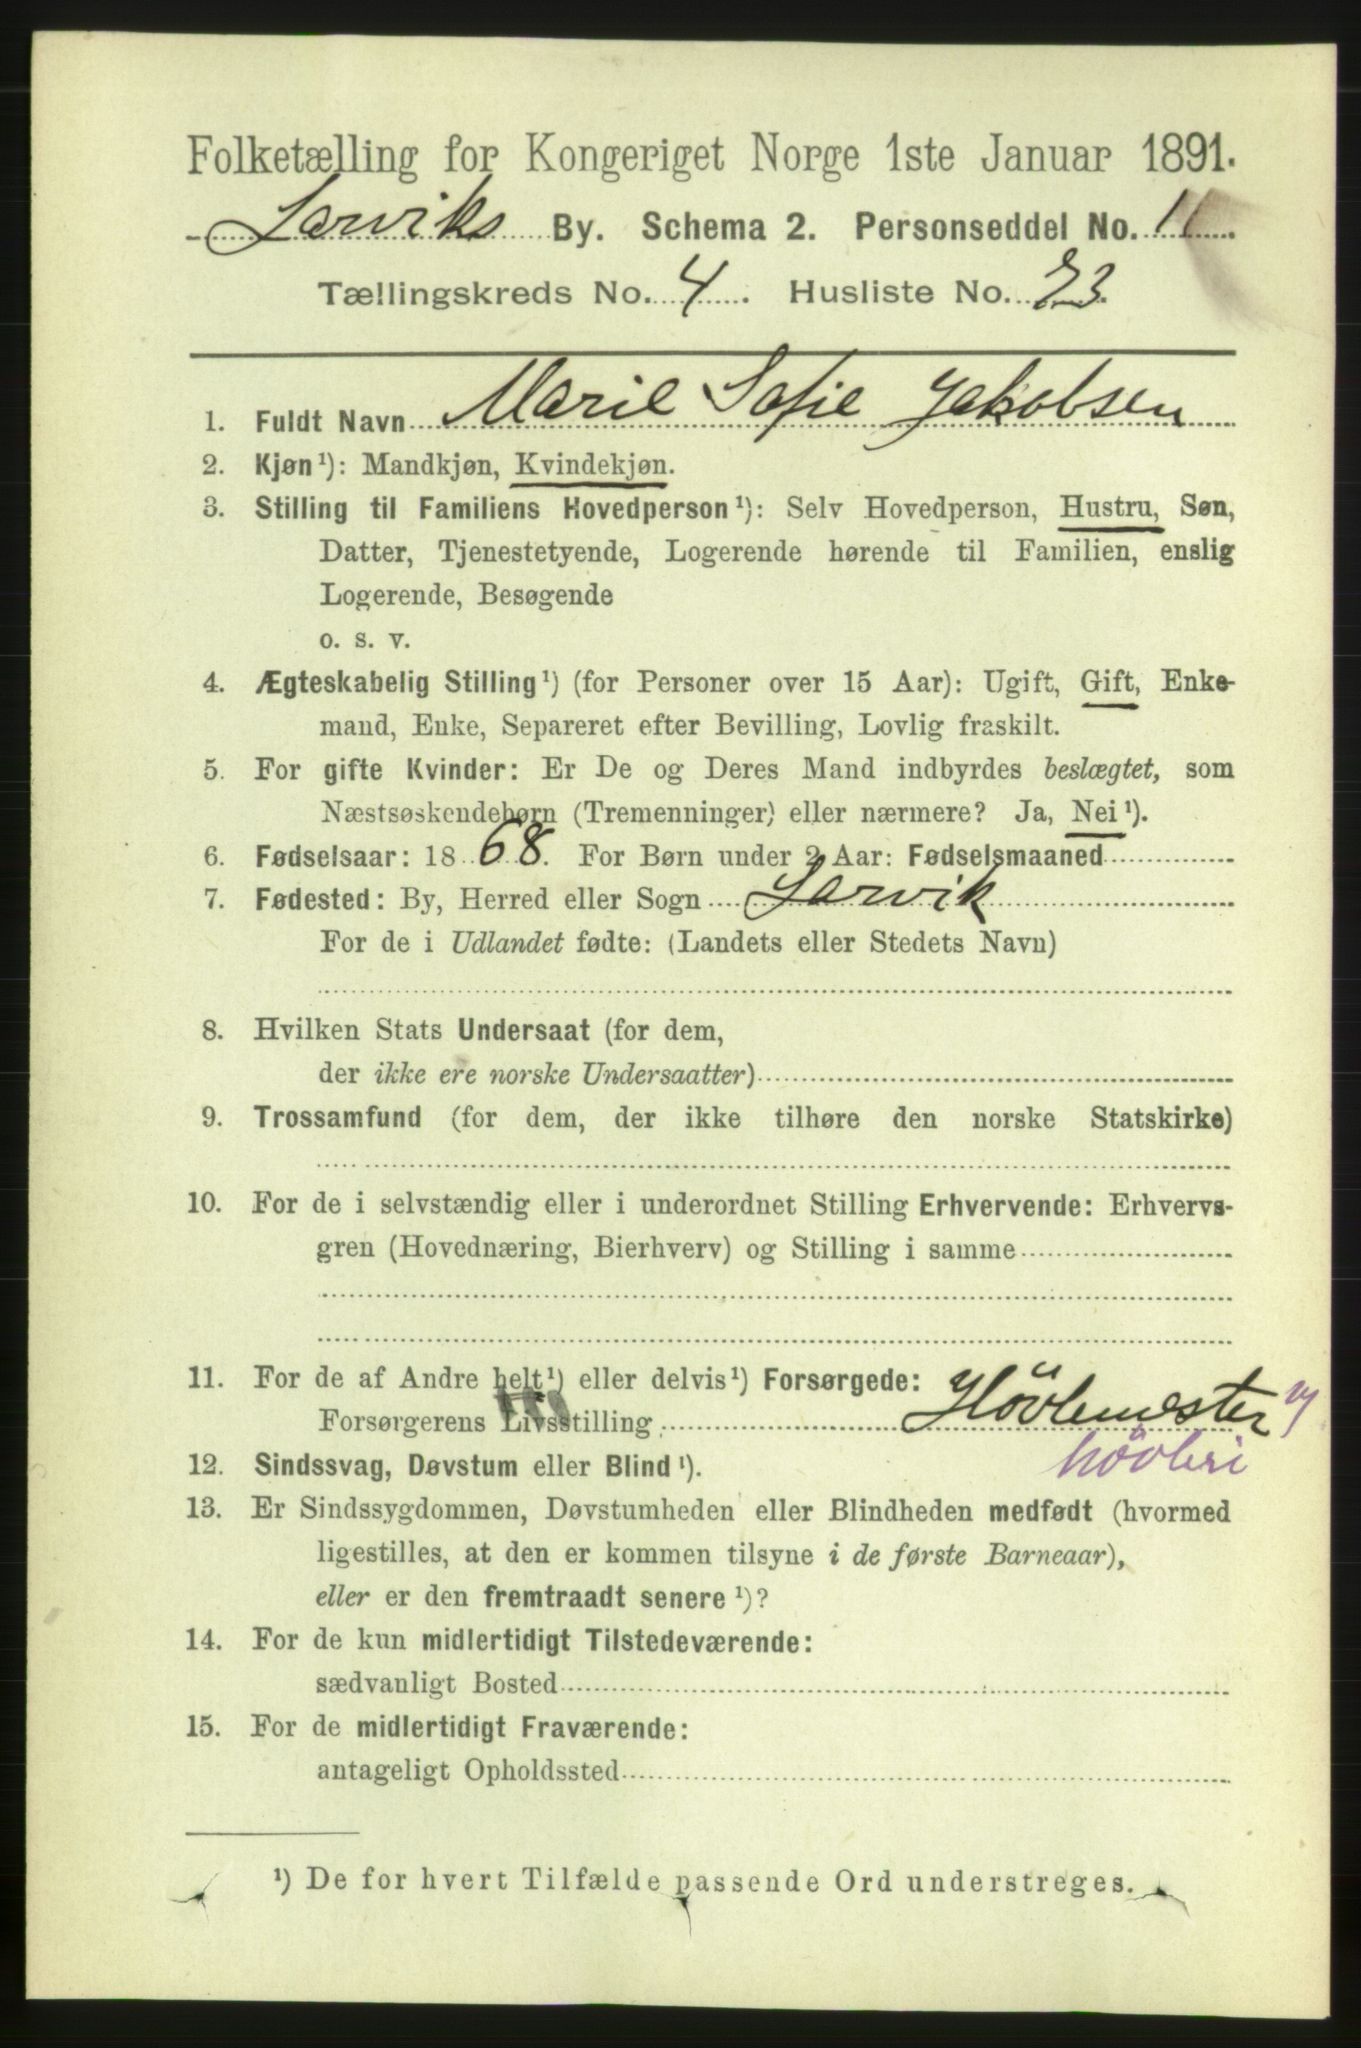 Folketælling for Kongeriget Norge 1ste Januar 1891.
Larviks By. Schema 2. Personseddel No. 11.
Tællingskreds No. 4. Husliste No. 23.
1. Fuldt Navn Marie Sofie Jakobsen
2. Kjøn¹): Mandkjøn, Kvindekjøn.
3. Stilling til Familiens Hovedperson¹): Selv Hovedperson, Hustru, Søn,
Datter, Tjenestetyende, Logerende hørende til Familien, enslig
Logerende, Besøgende
o. s. v.
4. Ægteskabelig Stilling¹) (for Personer over 15 Aar): Ugift, Gift, Enke-
mand, Enke, Separeret efter Bevilling, Lovlig fraskilt.
5. For gifte Kvinder: Er De og Deres Mand indbyrdes beslægtet, som
Næstsøskendebørn (Tremenninger) eller nærmere? Ja, Nei¹).
6. Fødselsaar: 1868. For Børn under 2 Aar: Fødselsmaaned
7. Fødested: By, Herred eller Sogn Larvik
For de i Udlandet fødte: (Landets eller Stedets Navn)
8. Hvilken Stats Undersaat (for dem,
der ikke ere norske Undersaatter)
9. Trossamfund (for dem, der ikke tilhøre den norske Statskirke)
10. For de i selvstændig eller i underordnet Stilling Erhvervende: Erhvervs-
gren (Hovednæring, Bierhverv) og Stilling i samme
11. For de af Andre helt¹) eller delvis¹) Forsørgede:
Forsørgerens Livsstilling Hövlemester
hövleri
12. Sindssvag, Døvstum eller Blind¹).
13. Er Sindssygdommen, Døvstumheden eller Blindheden medfødt (hvormed
ligestilles, at den er kommen tilsyne i de første Barneaar),
eller er den fremtraadt senere¹)?
14. For de kun midlertidigt Tilstedeværende:
sædvanligt Bosted
15. For de midlertidigt Fraværende:
antageligt Opholdssted
¹) De for hvert Tilfælde passende Ord understreges.